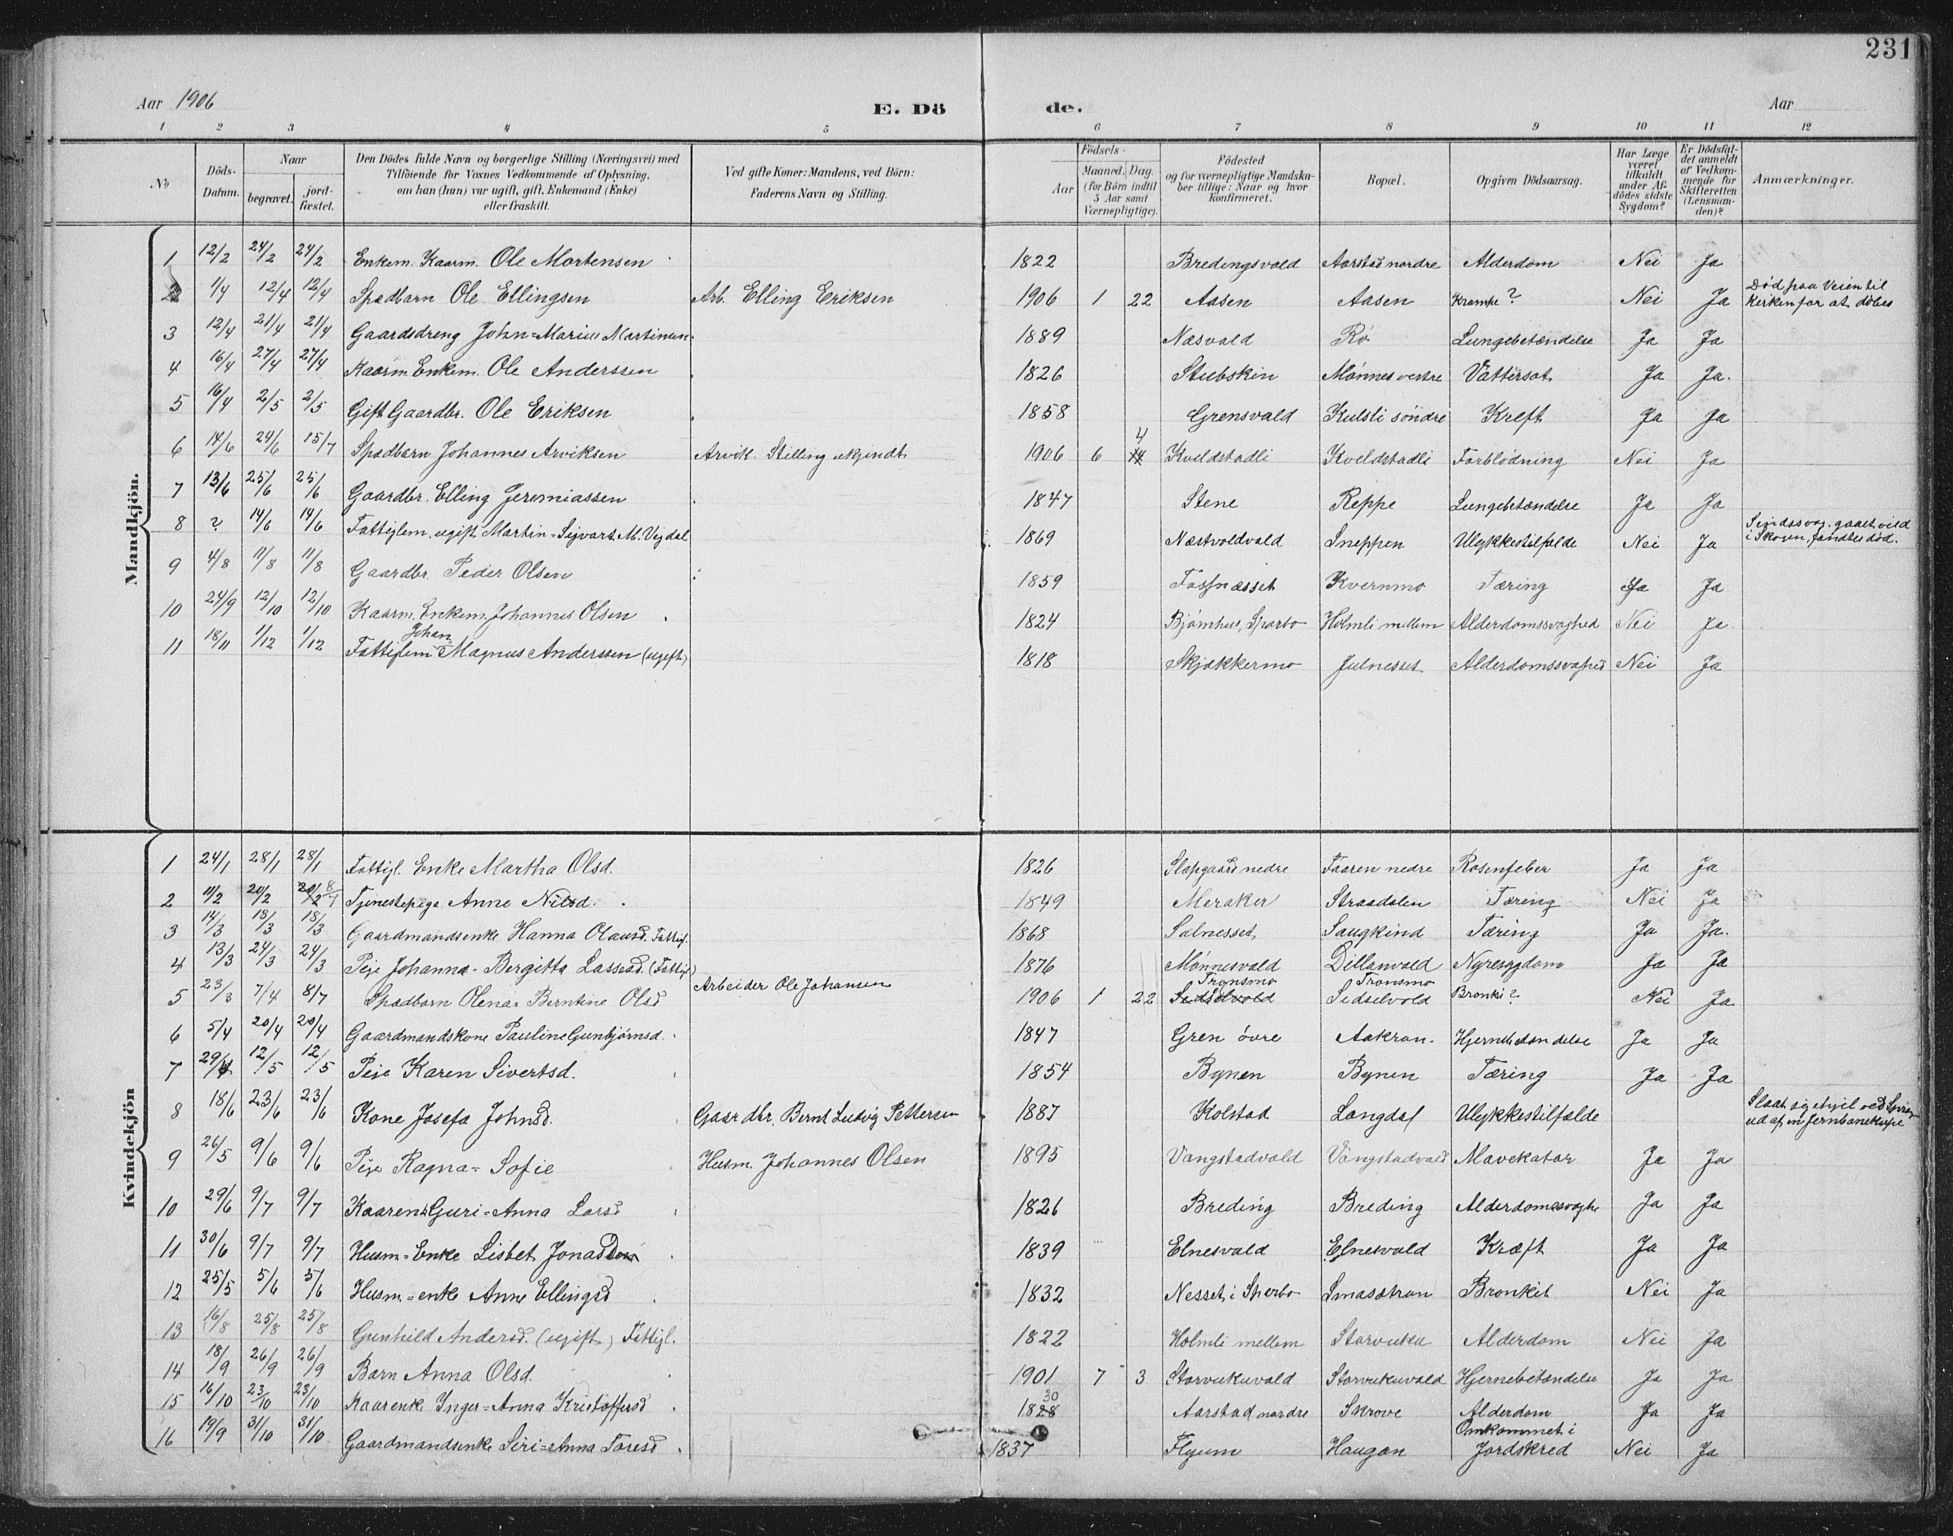 231
Aar 1906 E. Dö de. Aar
1 2 3 4 5 6 7 8 9 10 11 12
No
Döds-Datum.
Naar
begravet.
jord-fæstet.
Den Dödes fulde Navn og borgerlige Stilling (Næringsvei) med
Tilföiende for Voxnes Vedkommende af Oplysning,
om han (hun) var ugift, gift, Enkemand (Enke)
eller fraskilt.
Ved gifte Koner: Mandens, ved Börn:
Faderens Navn og Stilling.
Födsels-
Aar
Maaned. Dag.
(for Börn indtil
5 Aar samt
Værnepligtige).
Födested
og for værnepligtige Mandskaber tillige: Naar og hvor
konfirmeret.
Bopæl.
Opgiven Dödsaarsag.
Har Læge
været
tilkaldt
under Afdödes sidste
Sygdom?
Er Dödsfaldet anmeldt
af Vedkommende for
Skifteretten
(Lensmanden)?
Anmærkninger.
Mandkjön.
1 12/2 24/2 24/2 Enkem. Kaarm. Ole Mortensen 1822 Bredingsvald Aarstad nordre Alderdom Nei Ja
2 1/4 12/4 12/4 Spædbarn Ole Ellingsen Arb. Elling Eriksen 1906 1 22 Aasen Aasen Krampe? Nei Ja Død paa Veien til
Kirken for at døbes
3 12/4 21/4 21/4 Gaardsdreng John-Marius Martinsen 1889 Næsvald Rø Lungebetændelse Ja Ja
4 16/4 27/4 27/4 Kaarm. Enkem. Ole Anderssen 1826 Stubskin Mønnes vestre Vattersot Ja Ja.
5 16/4 2/5 2/5 Gift Gaardbr. Ole Eriksen 1858 Grensvald Kulsli søndre Kræft Ja Ja
6 14/6 24/6 15/7 Spædbarn Johannes Arviksen Arvik. Stilling ukjendt 1906 6 4 Kveldstadli Kveldstadli Forblødning Nei Ja
7 13/6 25/6 25/6 Gaardbr. Elling Jeremiassen 1847 Stene Reppe Lungebetændelse Ja Ja
8 ? 14/6 14/6 Fattiglem ugift Martin-Sigvart M. Vigdal 1869 Næstvoldvald Sneppen Ulykkestilfælde Nei Ja Sindssvag. gaaet vild
i Skogen, fandtes død.
9 4/8 11/8 11/8 Gaardbr. Peder Olsen 1859 Fosnæsset Kvernmo Tæring Ja Ja
10 24/9 12/10 12/10 Kaarm. Enkem. Johannes Olsen 1824 Bjørnhus, Sparbo Holmli mellem Alderdomssvaghed Nei Ja.
11 18/11 1/12 1/12 Fattiglem Johan Magnus Anderssen (ugift) 1818 Skjækkermo Julnesset Alderdomssvaghed Nei Ja
Kvindekjön
1 24/1 28/1 28/1 Fattigl. Enke Martha Olsd. 1826 Slapgaard nedre Faaren nedre Rosenfeber Ja Ja
2 11/2 20/2 20/2 Tjenestepige Anne Nilsd. 1849 Meraker Straadalen Tæring Nei Ja
3 14/3 18/3 18/3 Gaardmandsenke Hanna Olausd. Fattigl. 1868 Salnesset Saugkind Tæring Ja Ja.
4 13/3 24/3 24/3 Pige Johanna-Bergitta Lassesd. (Fattigl) 1876 Mønnesvald Dillanvald Nyresygdom Ja Ja
5 23/3 7/4 8/7 Spædbarn Olena-Berntine Olsd Arbeider Ole Johansen 1906 1 22 Sedselvold Tronsmo Sedselvold Tronsmo Bronki? Nei Ja
6 5/4 20/4 20/4 Gaardmandskone Pauline Gunbjørnsd. 1847 Gren øvre Aakran. Hjernebetændelse Ja Ja
7 29/4 12/5 12/5 Pige Karen Sivertsd. 1854 Bynen Bynen Tæring Ja Ja
8 18/6 23/6 23/6 Kone Josefa Johnsd. Gaardbr. Bernt Ludvig Pettersen 1887 Kolstad Langdal Ulykkestilfælde Slaat sig ihjel ved Spring
ud af en Jernbanekupe
9 26/5 9/6 9/6 Pige Ragna-Sofie Husm. Johannes Olsen 1895 Vangstadvald Vangstadvald Mavekatar Ja Ja
10 29/6 9/7 9/7 Kaarenke Guri-Anna Larsd 1826 Breding Breding Alderdomssvaghe Ja Ja
11 30/6 9/7 9/7 Husm-Enke Lisbet Jonasd 1839 Elnesvald Elnesvald Kræft Ja Ja
12 25/5 5/6 5/6 Husm-enke Anne Ellingsd 1832 Nesset i Sparbo Smaaætran Bronkit Nei Ja
13 16/8 25/8 25/8 Gunhild Andersd. (ugift) Fattigl. 1822 Holmli mellem Storvuku Alderdom Nei Ja
14 18/9 26/9 26/9 Barn Anna Olsd. 1901 7 3 Storvukuvald Storvukuvald Hjernebetændelse Ja Ja
15 16/10 23/10 23/10 Kaarenke Inger-Anna Kristoffersd 1828 30 Aarstad nordre Skrove Alderdom Ja Ja
16 19/9 31/10 31/10 Gaardmandsenke Siri-Anna Toresd 1837 Flyum Haugan Omkommet i
Jordskred Nei Ja